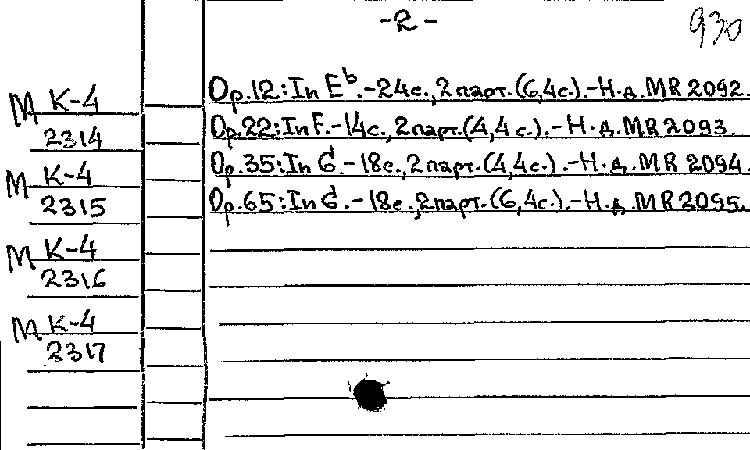 -2-
930
Op.12: In E♭.-24с., 2 парт.(6,4с.).-Н.д. MR 2092.
М К-4
2314
Op.22: In F.-14с., 2 парт.(4,4 с.).-Н.д. MR 2093
Op.35: In G.-18с., 2 парт.(4,4с.).-Н.д. MR 2094.
М К-4
2315
Op.65: In G.-18с., 2 парт.(6,4с.).-Н.д. MR 2095.
М К-4
2316
М К-4
2317